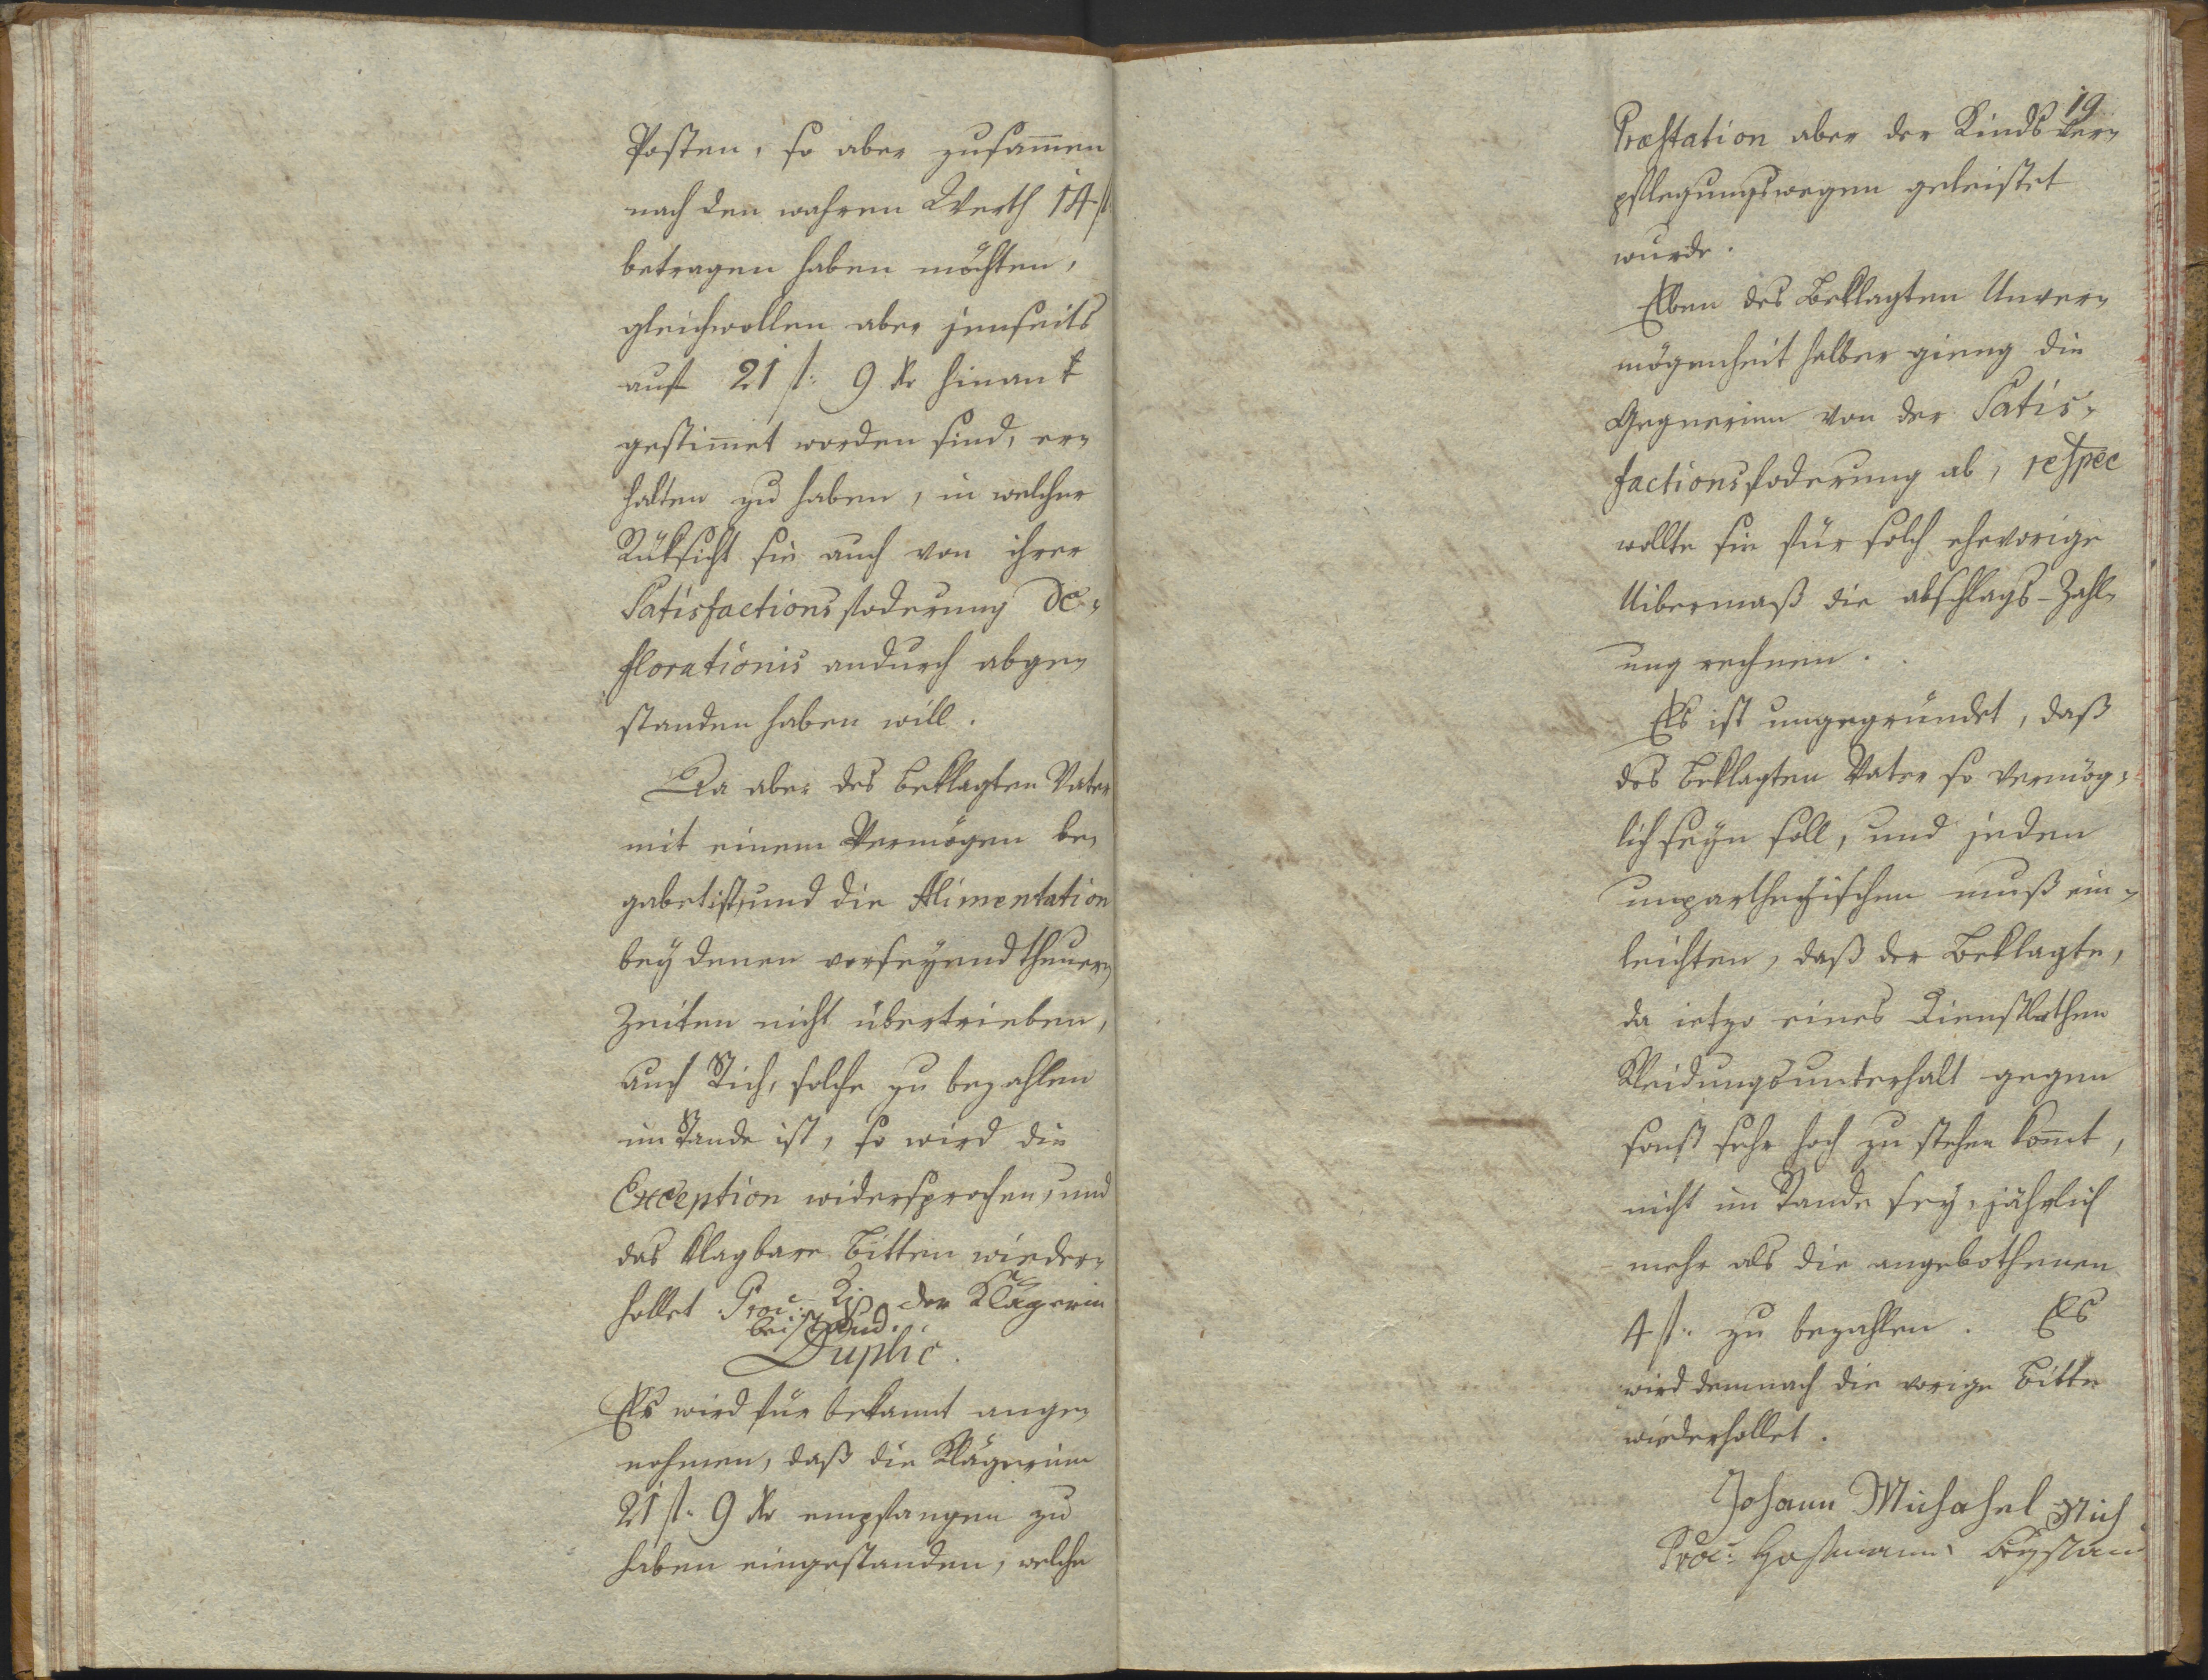 Posten, so aber zusam̄en
nach den wahren Werth 14 f.
betragen haben möchten,
gleichwollen aber jenseits
auf 21 f: 9 kr hinan
gestim̄et worden sind, er¬
halten zu haben, in welcher
Rüksicht sie auch von ihrer
Satisfactionsfoderung de¬
florationis andurch abge¬
standen haben will.
Da aber des beklagten Vater
mit einem Vermögen be¬
gabet ist, und die Alimentation
bey denen vorseyend theuern
Zeiten nicht übertrieben,
auch Rich, solche zu bezahlen
im Stande ist, so wird die
Exception widersprochen, und
das klagbare Bitten wieder¬
hollet. Proc: der Klägerin
beistand.
Duplic.
Es wird für bekannt ange¬
nohmen, daß die Klägerinn
21 f. 9 kr empfangen zu
haben eingestanden, welche
19
Præstation aber der Kindsver¬
pflegungswegen geleistet
wurde.
Eben des Beklagten Unver¬
mögenheit halber gieng die
Gegnerinn von der Satis¬
factionsfoderung ab, respec
wollte sie für solch ehevorige
Uibermaß die abschlags-Zahl¬
ung rechnen.
Es ist ungegründet, daß
des beklagten Vater so vermög¬
lich seyn soll, und jeden
unpartheyischen muß ein¬
leichten, daß der Beklagte,
da ietzo eines Dienstbothen
Kleidungsunterhalt gegen
sonst sehr hoch zu stehen kom̄t,
nicht im Stande sey, jährlich
mehr als die angebothenen
4 f. zu bezahlen. Es
wird demnach die vorige Bitte
wiederhollet.
Johann Michahel Rich
Proc: Hofmann Beystand